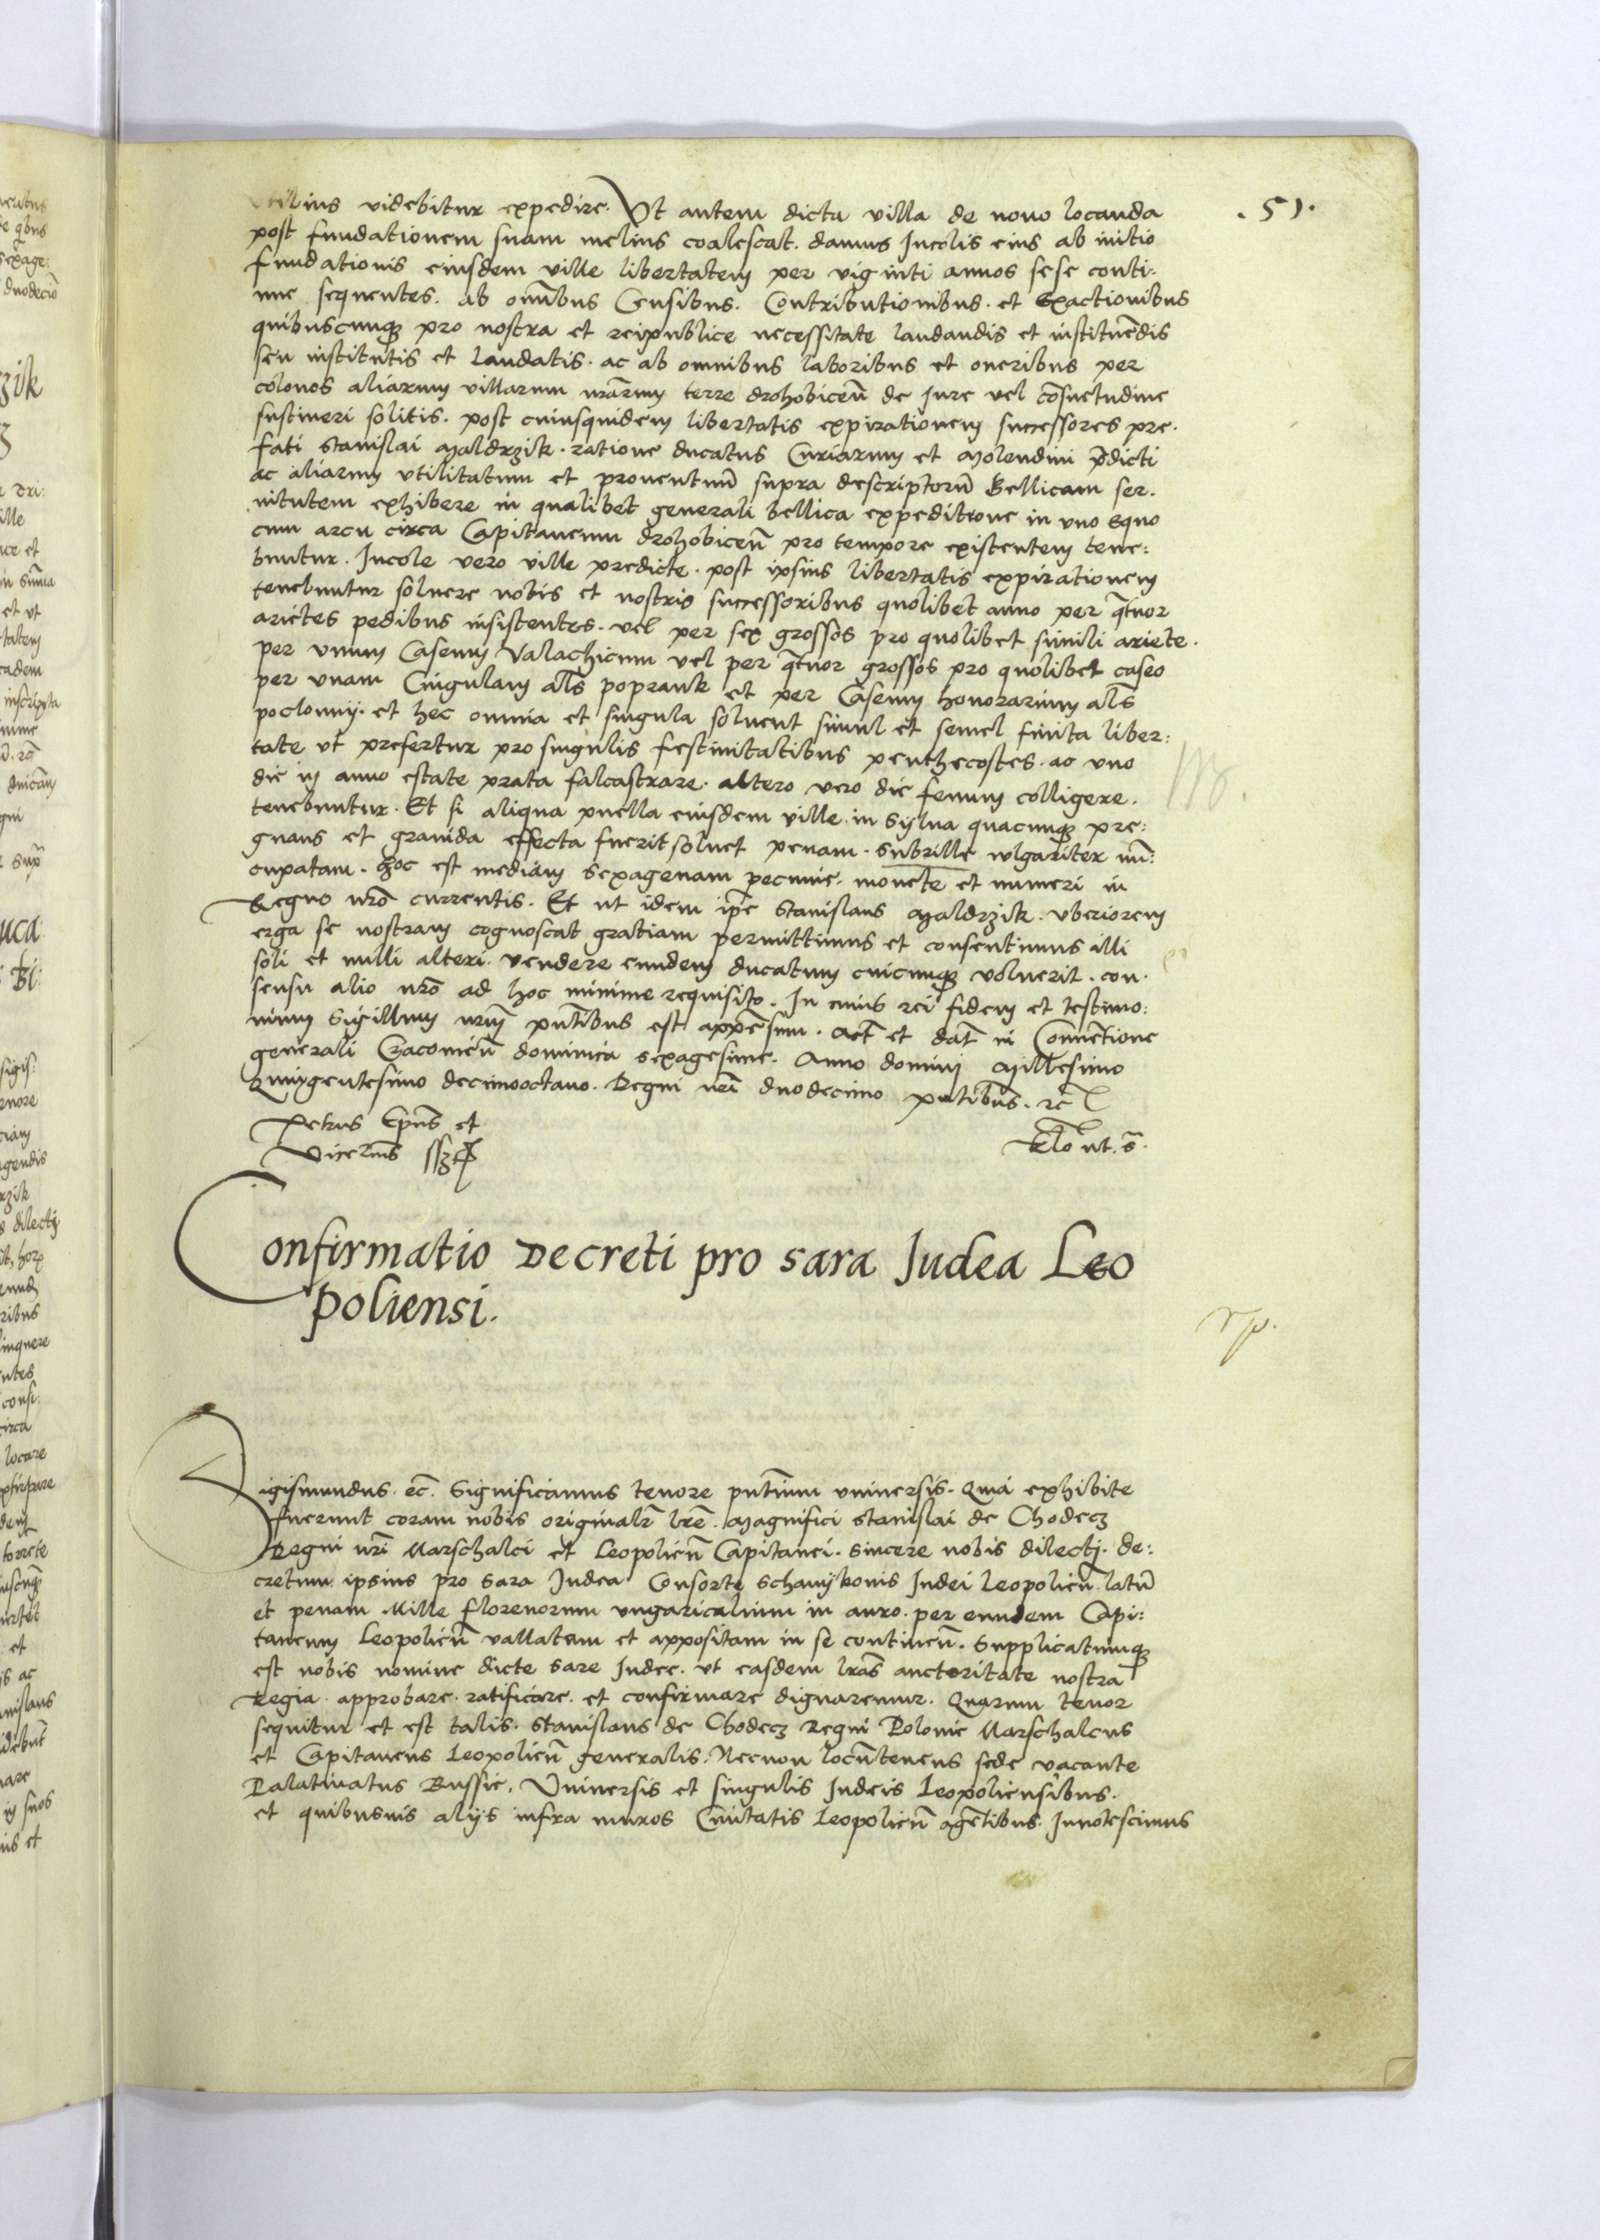 .51.
utilius videbitur expedire. Vt autem dicta villa de nouo locanda
post fundationem suam melius coalescat. damus Incolis eius ab initio
fundationis eiusdem ville libertatem per viginti annos sese conti:
nue sequentes. ab omībus Censibus. Contributionibus. et Exactionibus
quibuscunqꝫ pro nostra et reipublice necessitate laudandis et instituēdis
seu institutis et laudatis. ac ab omnibus laboribus et oneribus per
colonos aliarum villarum nrārum terre drohobiceñ de Jure vel cōsuetudine
sustineri solitis. post cuiusquidem libertatis expirationem successores pre.
fati Stanislai Maldrzik. ratione ducatus Curiarum et Molendini p̄dicti
ac aliarum vtilitatum et prouentuū supra descriptorū Bellicam ser.
uitutem exhibere in qualibet generali bellica expeditione in vno Equo
cum arcu circa Capitaneum drohobiceñ pro tempore existentem tene:
buntur. Incole vero ville predicte. post ipsius libertatis expirationem
tenebuntur soluere nobis et nostris successoribus quolibet anno per q̄tuor
arietes pedibus insistentes. vel per sex grossos pro quolibet simili ariete.
per vnum Caseum Valachicum vel per q̄tuor grossos pro quolibet caseo
per vnam Cingulam al̄s poprank et per Caseum honorarium al̄s
poclonny. et hec omnia et singula soluent simul et semel finita liber:
tate vt prefertur pro singulis festiuitatibus penthecostes. ac vno
die in anno estate prata falcastrare. altero vero die fenum colligere.
tenebuntur. Et si aliqua puella eiusdem ville in Sylua quacunqꝫ pre:
gnans et grauida effecta fuerit soluet penam. Subrille wlgariter nū:
cupatam. hoc est mediam Sexagenam pecunie. monete et numeri in
Regno nrō currentis. Et ut idem ip̄e Stanislaus Maldrzik. vberiorem
erga se nostram cognoscat gratiam permittimus et consentimus illi
soli et nulli alteri. vendere eundem ducatum cuicunqꝫ voluerit. con.
sensu alio nrō ad hoc minime requisito. In cuius rei fidem et testimo:
nium Sigillum nrūm pn̄tibus est appēsum. Act̄ et dat̄ in Conuētione
generali Cracouieñ dominica sexagesime. Anno domini Millesimo
Quingentesimo decimooctauo. Regni nrī duodecimo pn̄tibus. rc̄
Petrus Epūs et
Vicecn̄s
Rlo ut. s̄.
Confirmatio Decreti pro sara Judea Leo
poliensi.
Sigismundus. ec̄. Significamus tenore pn̄tium vniuersis. Quia exhibite
fuerunt coram nobis original̄r lrē. Magnifici Stanislai de Chodecz
Regni nrī Marschalci et Leopolieñ Capitanei. sincere nobis dilecti. de:
cretum ipsius pro Sara Judea Consorte Schamy konis Judei Leopolieñ latū
et penam Mille florenorum vngaricalium in auro. per eundem Capi:
taneum Leopolieñ vallatam et appositam in se contineñ. Supplicatumqꝫ
est nobis nomine dicte Sare Judee. vt easdem lrās auctoritate nostra
Regia. approbare. ratificare. et confirmare dignaremur. Quarum tenor
sequitur et est talis. Stanislaus de Chodecz Regni Polonie Marschalcus
et Capitaneus Leopolieñ generalis. Necnon locūtenens sede vacante
Palatinatus Russie. Vniuersis et singulis Judeis Leopoliensibus.
et quibusuis alijs infra muros Ciuitatis Leopolieñ agētibus. Innotescimus